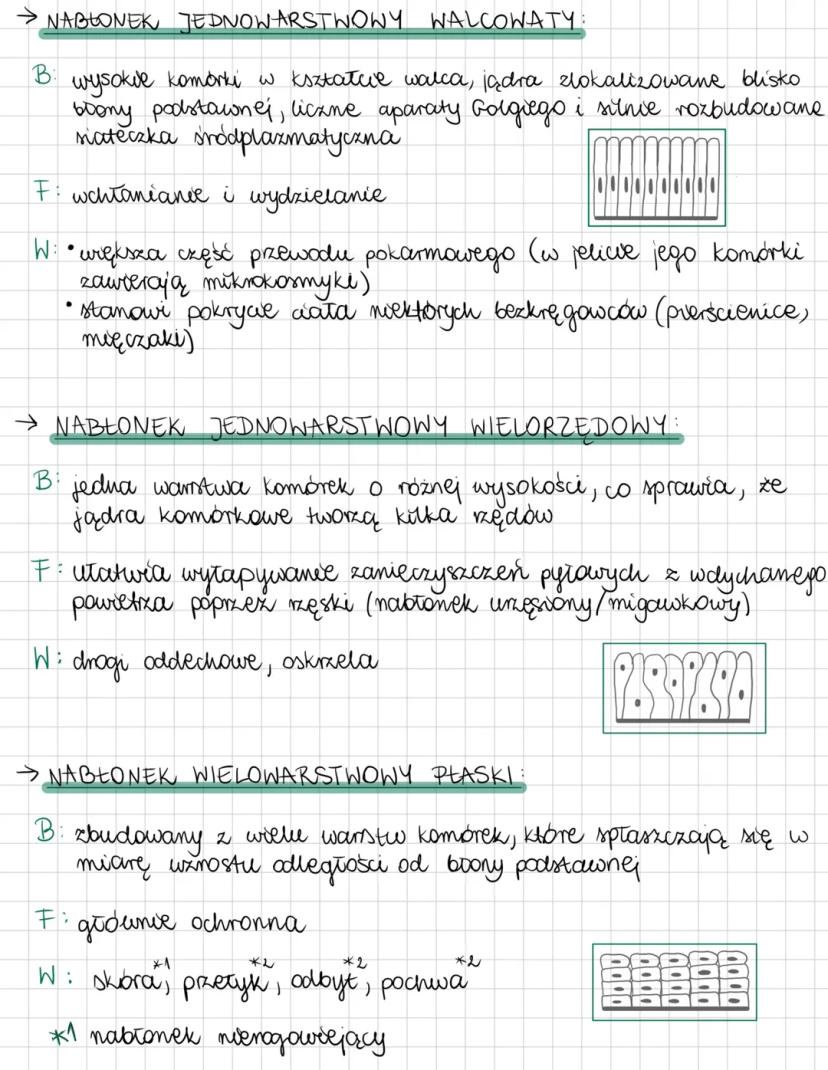 → NABŁONEK JEDNOWARSTWOWY WALCOWATY:
B: wysokie komórki w kształcie walca, jądra zlokalizowane blisko
błony podstawnej, liczne aparaty Golgiego i silnie rozbudowane
siateczka śródplazmatyczna
F: wchłanianie i wydzielanie
W: • większa część przewodu pokarmowego (w jelicie jego komórki
zawierają mikrokosmyki)
• stanowi pokrycie ciała niektórych bezkręgowców (pierścienice,
mięczaki)
→ NABŁONEK JEDNOWARSTWOWY WIELORZĘDOWY:
B: jedna warstwa komórek o różnej wysokości, co sprawia, że
jądra komórkowe tworzą kilka rzędów
F: ułatwia wyłapywanie zanieczyszczeń pyłowych z wdychanego
powietrza poprzez rzęski (nabłonek urzęsiony/migawkowy)
W: drogi oddechowe, oskrzela
→ NABŁONEK WIELOWARSTWOWY PŁASKI:
B: zbudowany z wielu warstw komórek, które spłaszczają się w
miarę wzrostu odległości od błony podstawnej
F: głównie ochronna
W: skóra*1, przełyk*2, odbyt*2, pochwa*2
*1 nabłonek nierogowiejący